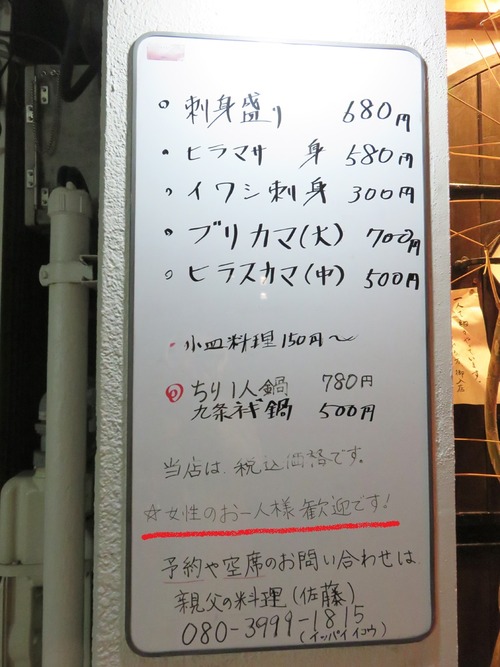 刺身盛り 680円
ヒラマサ 身 580円
イワシ刺身 300円
ブリカマ(大) 700円
ヒラスカマ(中) 500円
小皿料理150円〜
ちり1人鍋 780円
九条ネギ鍋 500円
当店は、税込価格です。
☆女性のお一人様歓迎です!
予約や空席のお問い合わせは
親父の料理(佐藤)
080-3999-1815
(イッパイイコウ)